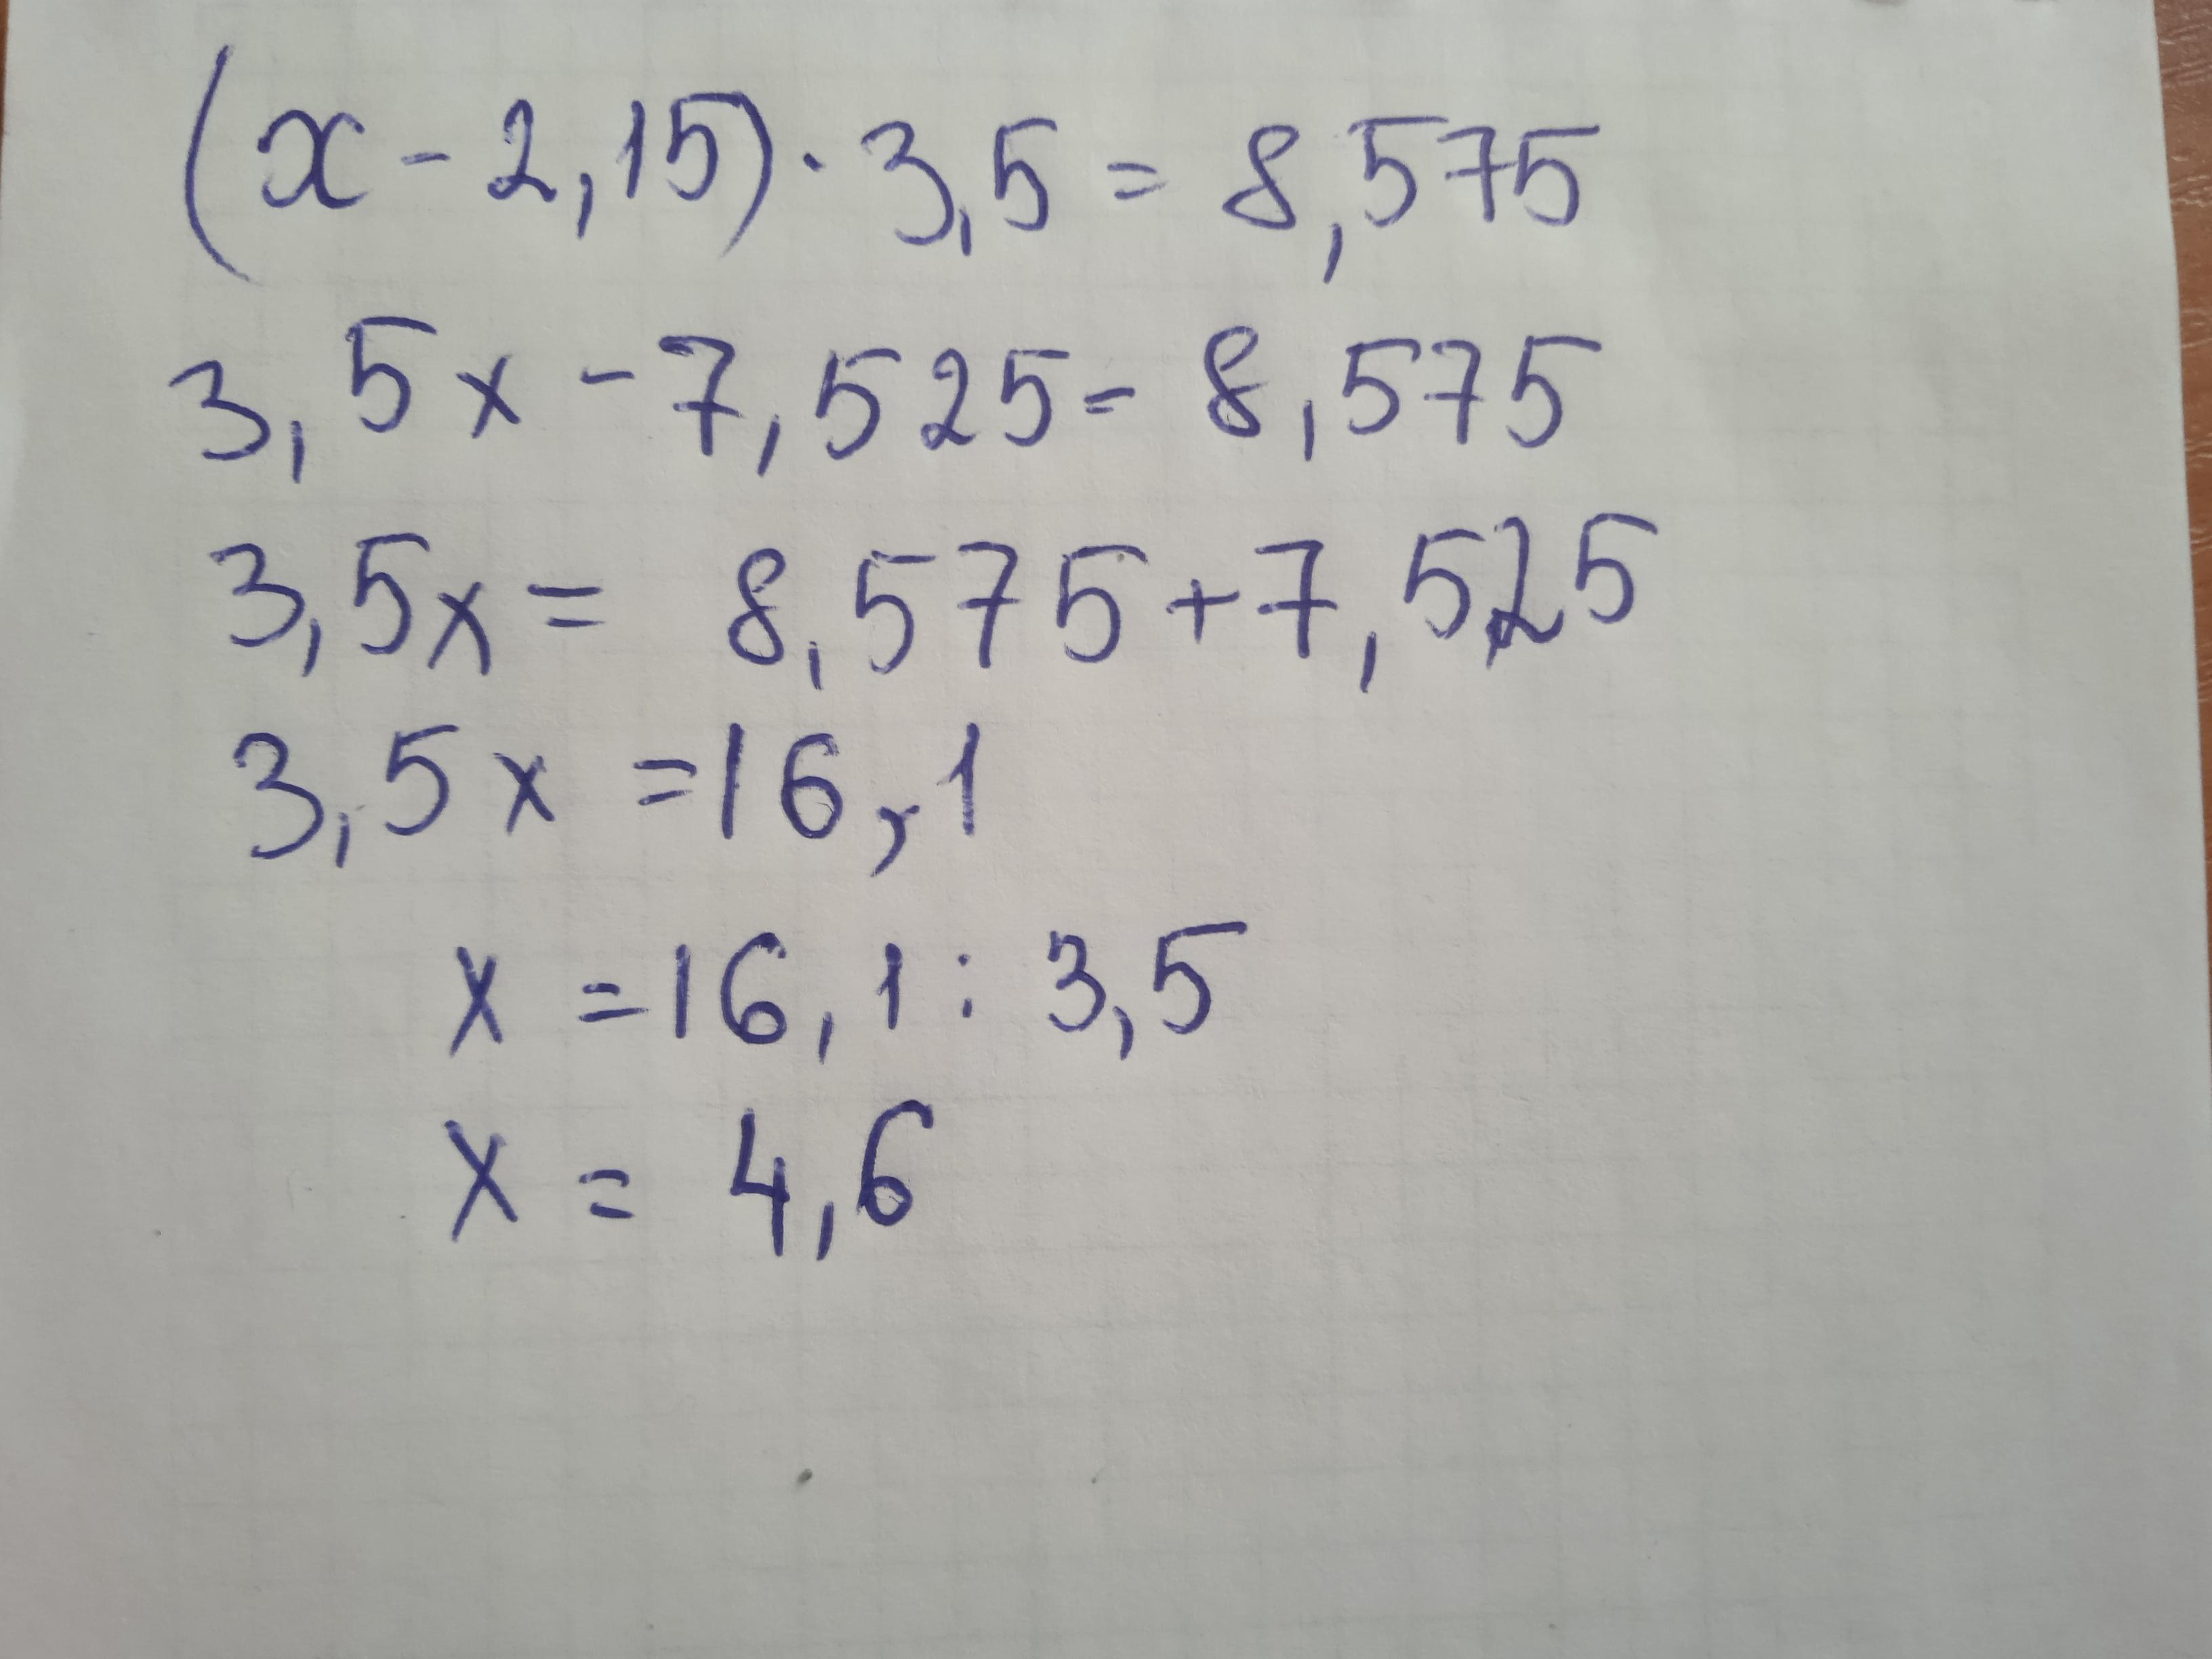 (x - 2,15) · 3,5 = 8,575
3,5x - 7,525 = 8,575
3,5x = 8,575 + 7,525
3,5x = 16,1
x = 16,1 : 3,5
x = 4,6